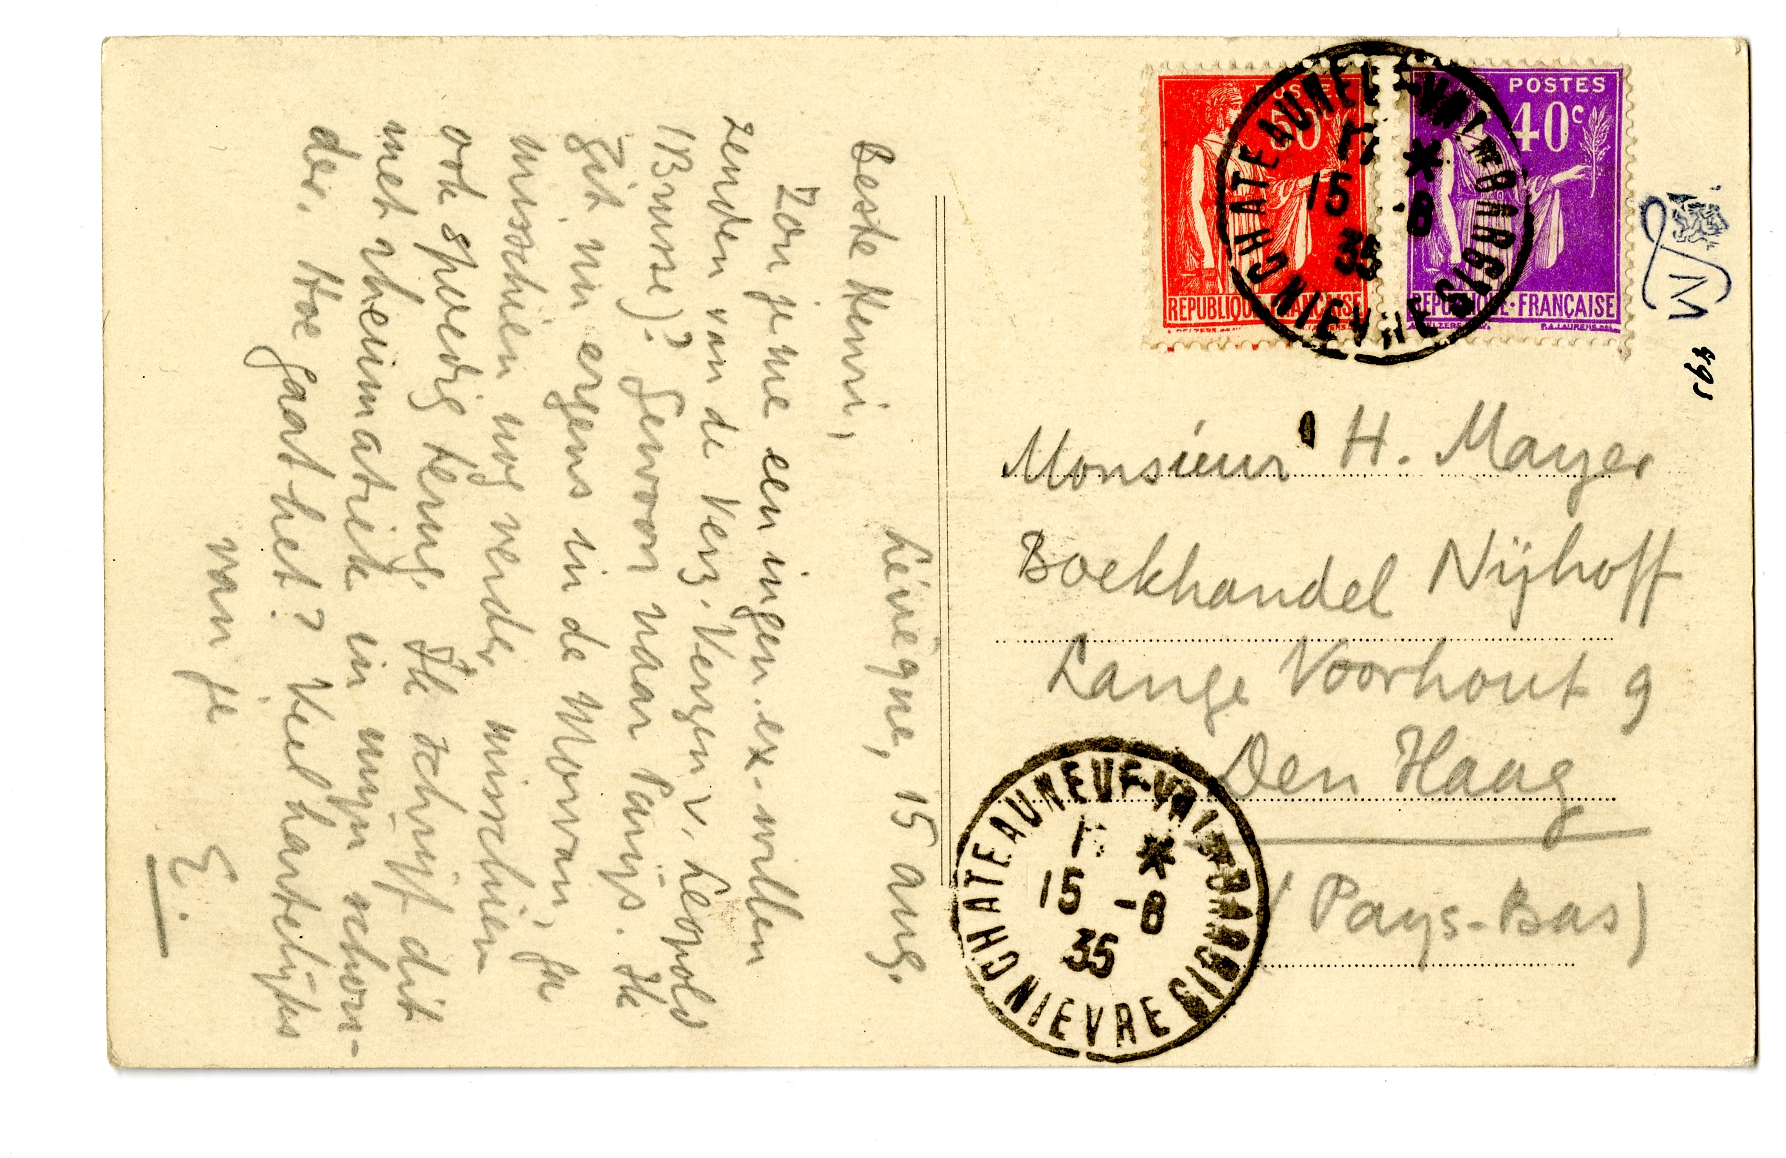 Lévèque, 15 aug.
Beste Henri,
Zou je me een ingen. ex. willen
zenden van de Verz. Verzen v. Leopold
(Brusse)? Gewoon naar Parijs. Ik
zit nu ergens in de Morvan, ga
misschien nog verder, misschien
ook spoedig terug. Ik schrijf dit
met rheumatiek in mijn schou-
der. Hoe gaat het? Veel hartelijks
van je
E.
POSTES
50c
REPUBLIQUE FRANÇAISE
POSTES
40c
REPUBLIQUE·FRANÇAISE
P.A.LAURENS DEL.
CHATEAUNEUF-VAL-DE-BARGIS
NIEVRE
15 -8
35
M
Monsieur H. Mayer
Boekhandel Nijhoff
Lange Voorhout 9
Den Haag
(Pays-Bas)
CHATEAUNEUF-VAL-DE-BARGIS
NIEVRE
15 -8
35